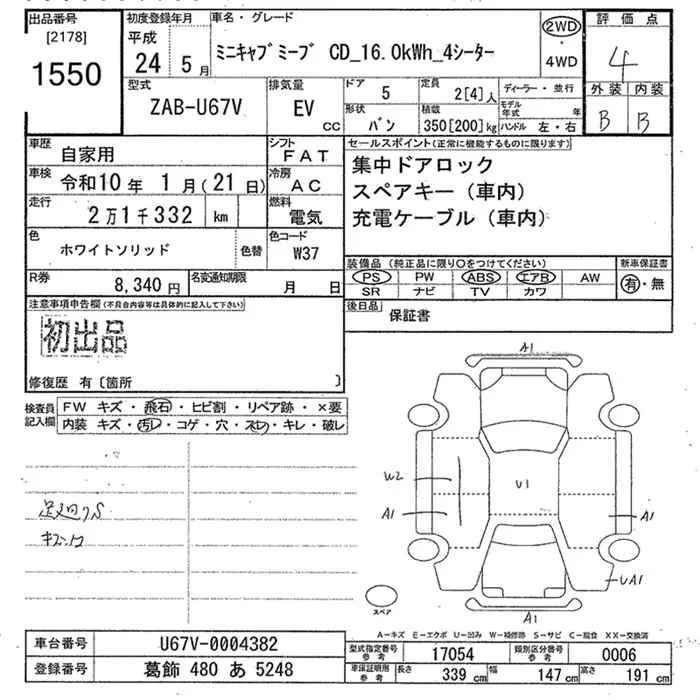 出品番号 初度登録年月 車名・グレード 2WD ・ 4WD 評価点
[2178] 1550 平成 24 5月 ミニキャブミーブ CD_16.0kWh_4シーター 4
型式 排気量 ドア 5 定員 2[4]人 ディーラー・並行 外装 内装
ZAB-U67V EV CC 形状 バン 積載 350[200]kg モデル年式 年 ハンドル 左・右 B B
車歴 自家用 シフト FAT セールスポイント(正常に機能するものに限ります)
車検 令和10年 1月(21日) 冷房 AC 集中ドアロック
スペアキー(車内)
走行 2万1千332 km 燃料 電気 充電ケーブル(車内)
色 ホワイトソリッド 色替 色コード W37
装備品(純正品に限り〇をつけてください) 新車保証書
PS PW ABS エアB AW 有・無
R券 8,340円 名変通知期限 月 日 SR ナビ TV カワ
注意事項申告欄(不具合内容等は具体的に記入して下さい) 後日品 保証書
初出品
修復歴 有〔箇所 〕
検査員記入欄 FW キズ・飛石・ヒビ割・リペア跡・×要
内装 キズ・汚レ・コゲ・穴・スレ・キレ・破レ
A1
W2 U1
A1 A1
足廻りS
UA1
スペア A1
A―キズ E―エクボ U―凹み W―補修跡 S―サビ C―腐食 XX―交換済
車台番号 U67V-0004382 型式指定番号 参考 17054 類別区分番号 参考 0006
登録番号 葛飾 480 あ 5248 車庫証明用 参考 長さ 339 cm 幅 147 cm 高さ 191 cm